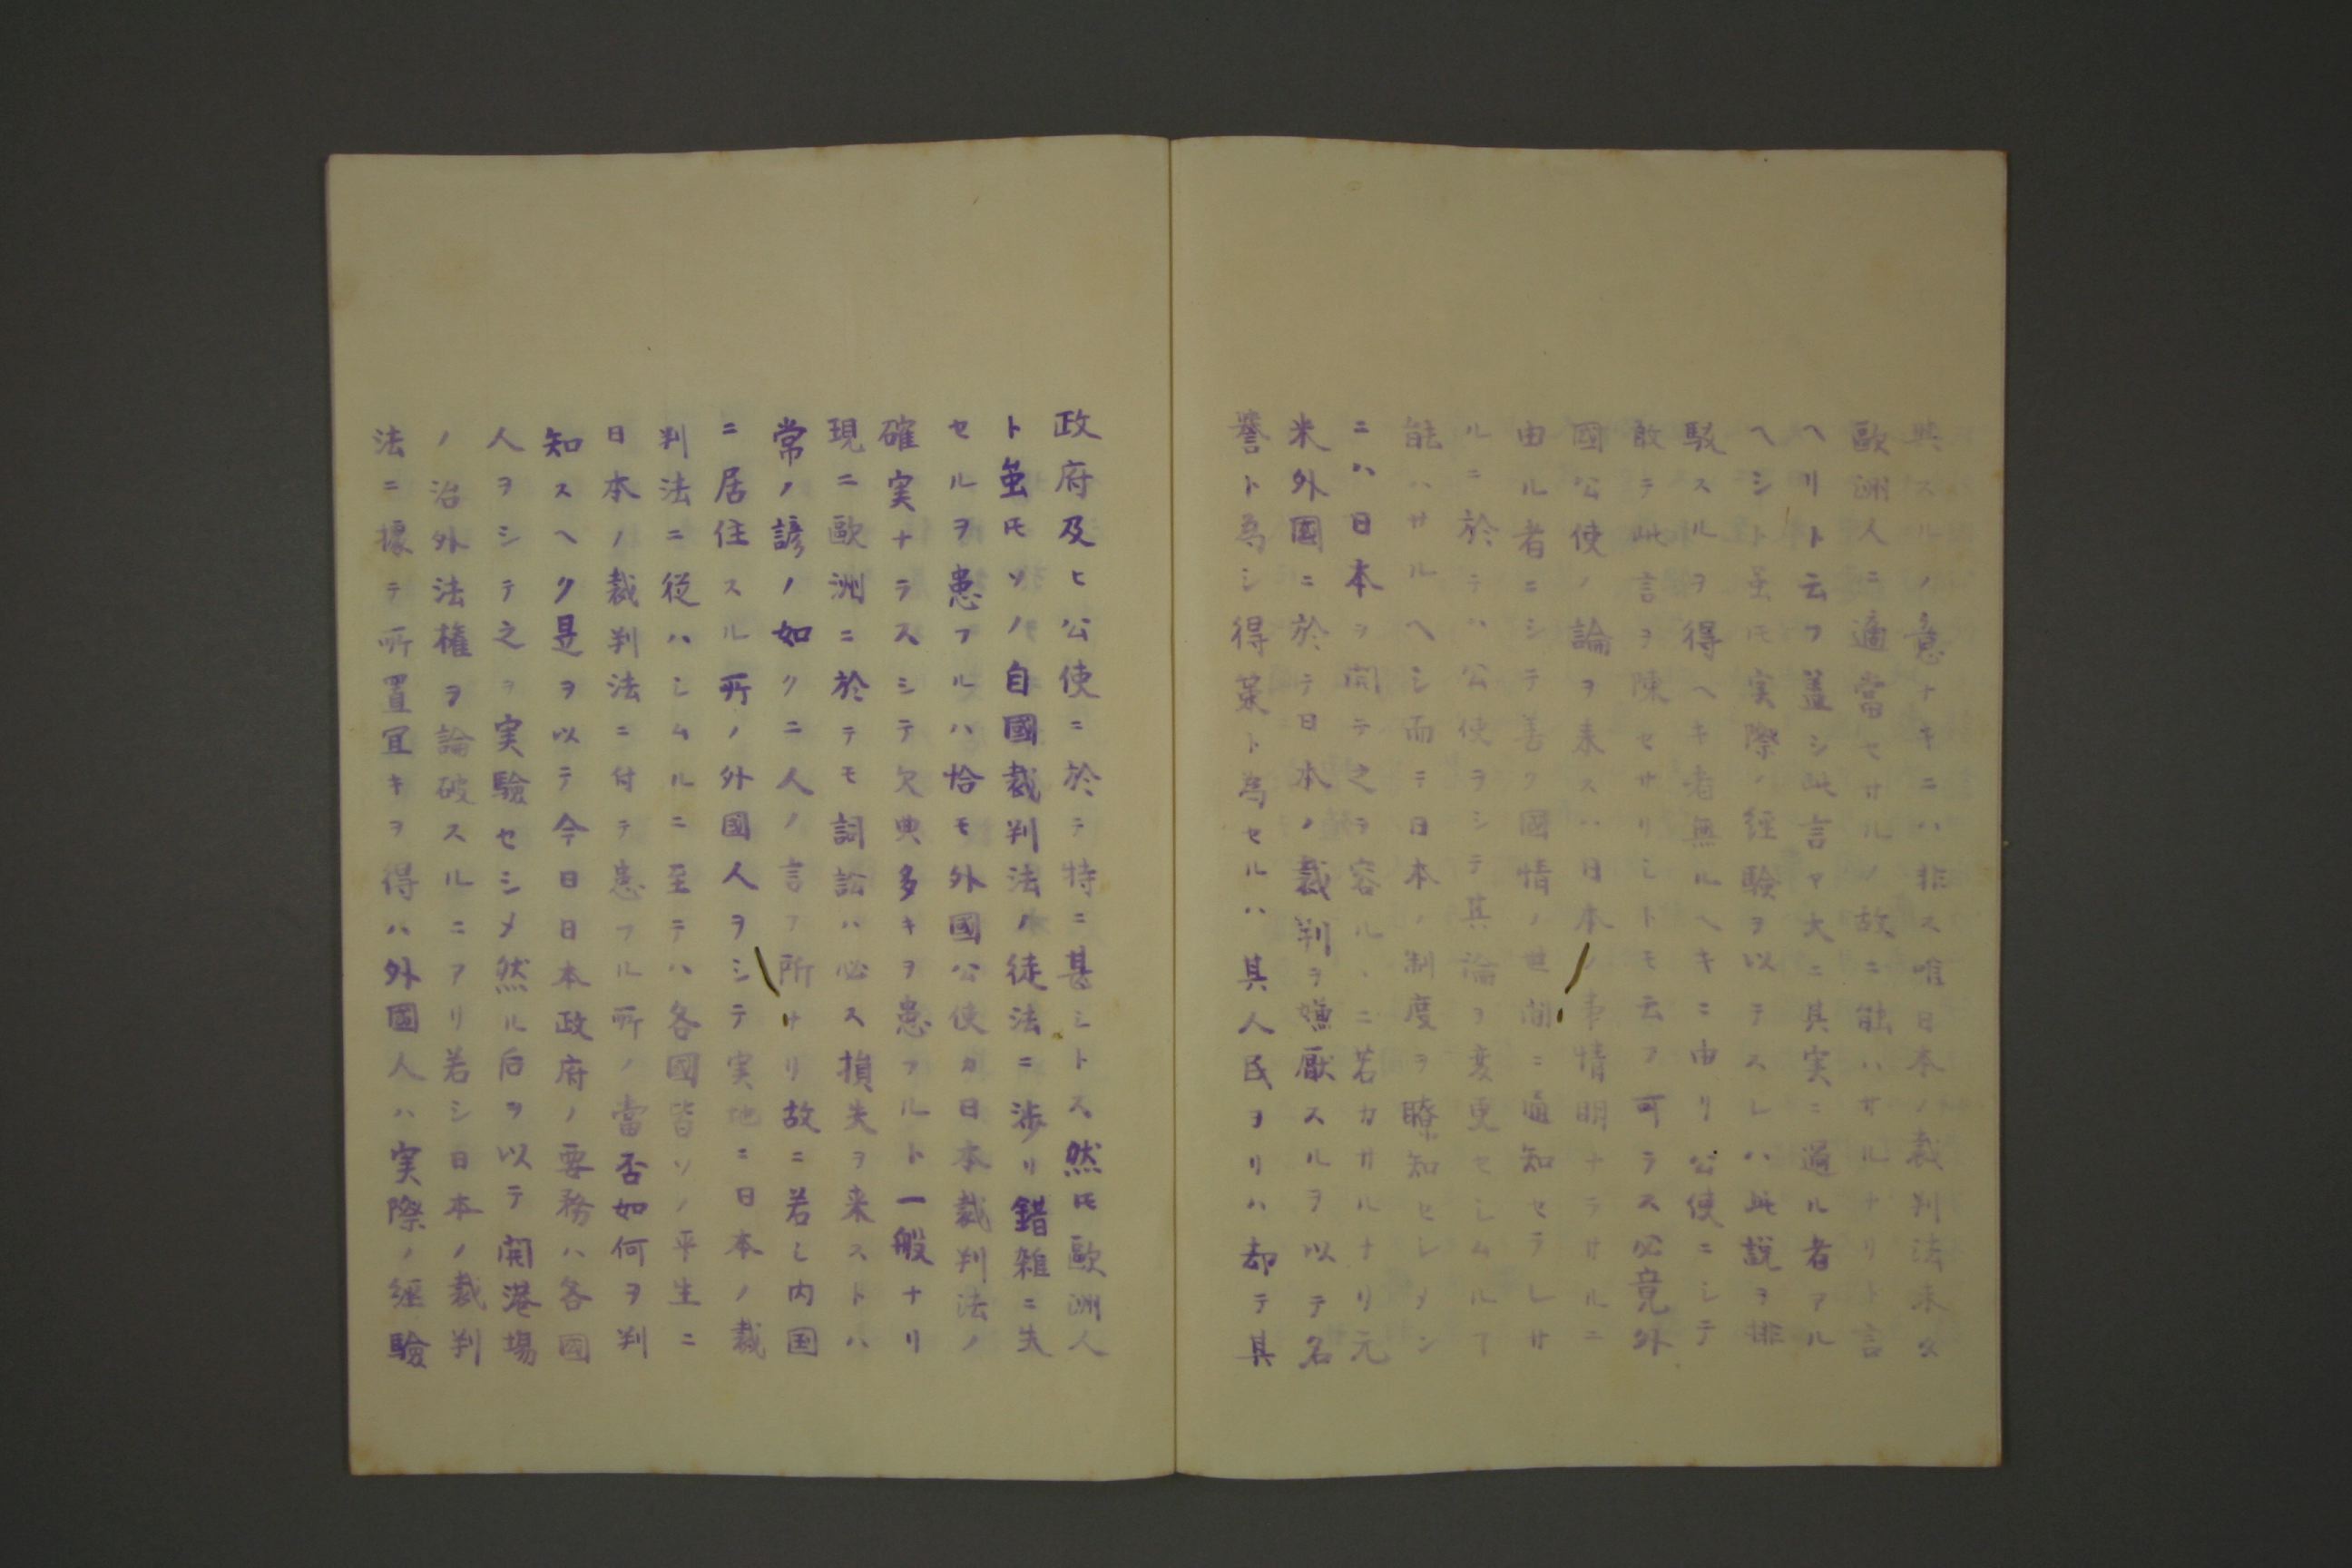 興スルノ意ナキニハ非ス唯日本ノ裁判法未タ
歐洲人ニ適當セサルノ故ニ能ハサルナリト言
ヘリト云フ蓋シ此言ヤ大ニ其実ニ過ル者アル
ヘシト虽𪜈実際ノ經驗ヲ以テスレハ此説ヲ排
駁スルヲ得ヘキ者無ルヘキニ由リ公使ニシテ
敢テ此言ヲ陳セサリシトモ云フ可ラス必竟外
國公使ノ論ヲ来スハ日本ノ事情明ナラサルニ
由ル者ニシテ善ク國情ノ世間ニ通知セラレサ
ルニ於テハ公使ヲシテ其論ヲ変更セシムルヿ
能ハサルヘシ而テ日本ノ制度ヲ瞭知セシメン
ニハ日本ヲ開テ之ヲ容ルヽニ若カサルナリ元
米外國ニ於テ日本ノ裁判ヲ嫌厭スルヲ以テ名
誉ト為シ得策ト為セルハ其人民ヨリハ却テ其
政府及ヒ公使ニ於テ特ニ甚シトス然𪜈歐洲人
ト虽𪜈ソノ自國裁判法ノ徒法ニ渉リ錯雑ニ失
セルヲ患フルハ恰モ外國公使カ日本裁判法ノ
確実ナラスシテ欠典多キヲ患フルト一般ナリ
現ニ歐洲ニ於テモ詞訟ハ必ス損失ヲ来ストハ
常ノ諺ノ如ク二人ノ言フ所ナリ故ニ若シ内国
ニ居住スル所ノ外國人ヲシテ実地ニ日本ノ裁
判法ニ従ハシムルニ至テハ各國皆ソノ平生ニ
日本ノ裁判法ニ付テ患フル所ノ當否如何ヲ判
知スヘク是ヲ以テ今日日本政府ノ要務ハ各國
人ヲシテ之ヲ実驗セシメ然ル后ヲ以テ開港場
ノ治外法権ヲ論破スルニアリ若シ日本ノ裁判
法ニ據テ所置宜キヲ得ハ外國人ハ実際ノ經驗